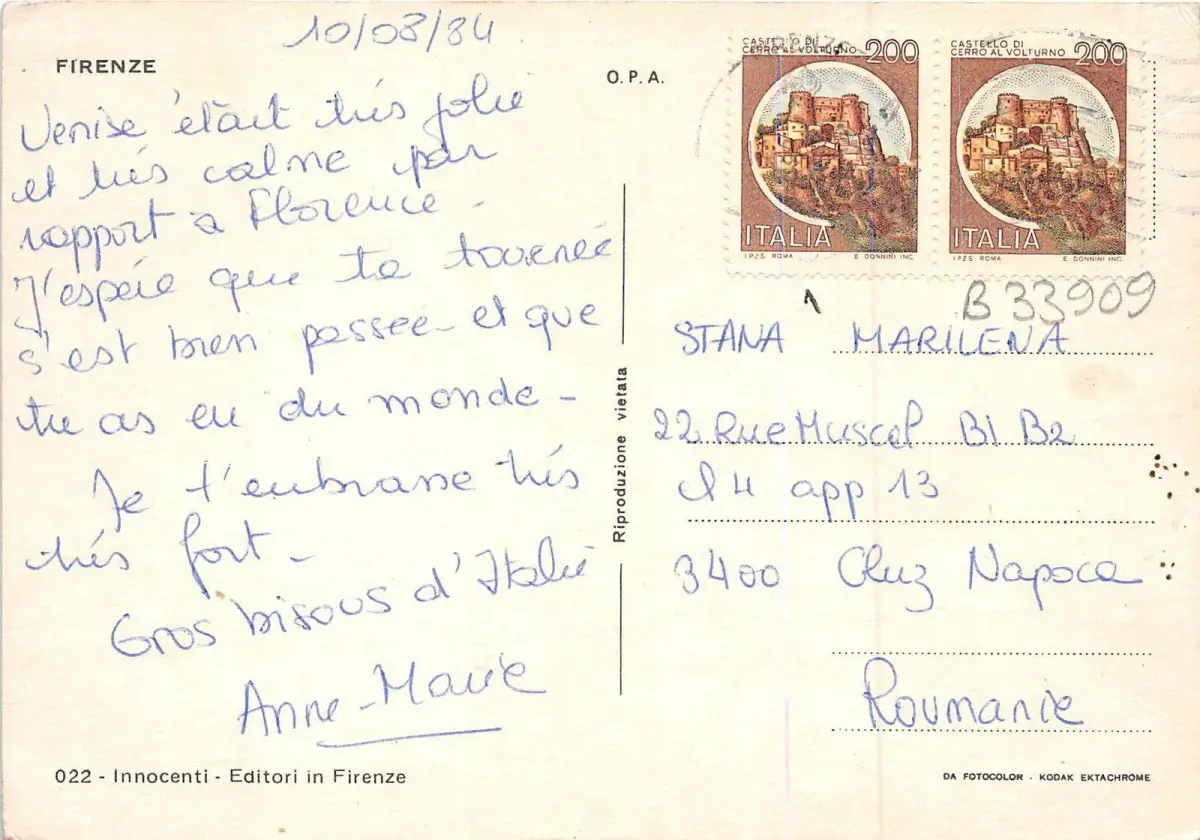 10/08/84
FIRENZE
O.P.A.
Venise était très jolie
et très calme par
rapport à Florence.
J'espère que ta tournée
s'est bien passée - et que
tu as eu du monde -
Je t'embrasse très
très fort -
Gros bisous d'Italie
Anne-Marie
022 - Innocenti - Editori in Firenze
Riproduzione vietata
CASTELLO DI
CERRO AL VOLTURNO 200
ITALIA
I.P.Z.S. ROMA E. DONNINI INC.
CASTELLO DI
CERRO AL VOLTURNO 200
ITALIA
I.P.Z.S. ROMA E. DONNINI INC.
B 33909
STANA MARILENA
22 Rue Muscel Bl B2
et 4 app 13
3400 Cluz Napoca
Roumanie
DA FOTOCOLOR - KODAK EKTACHROME